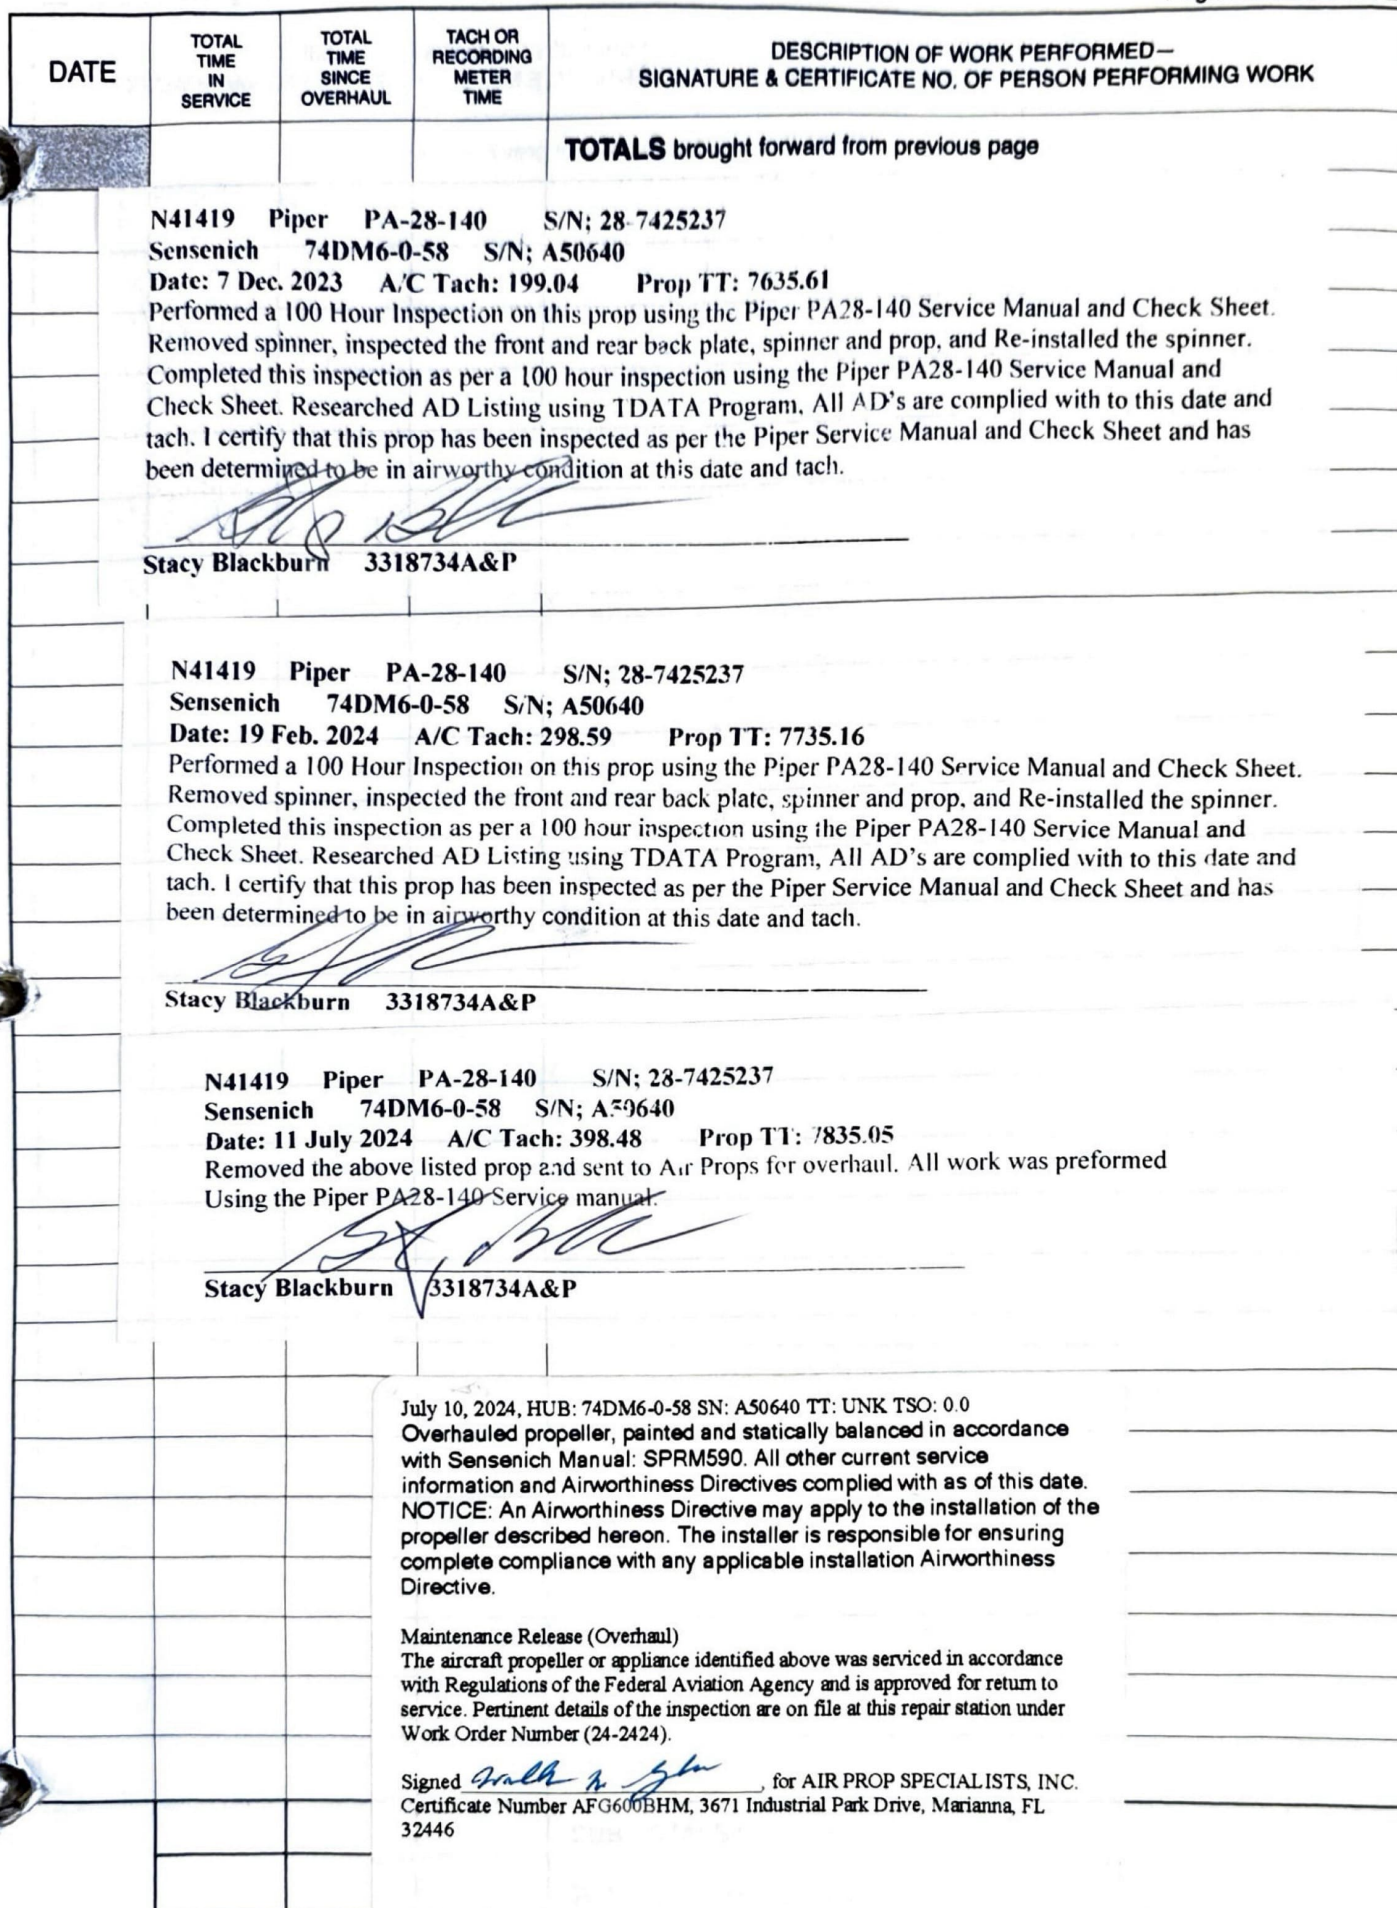 DATE
TOTAL TIME IN SERVICE
TOTAL TIME SINCE OVERHAUL
TACH OR RECORDING METER TIME
DESCRIPTION OF WORK PERFORMED—
SIGNATURE & CERTIFICATE NO. OF PERSON PERFORMING WORK
TOTALS brought forward from previous page
N41419 Piper PA-28-140 S/N; 28-7425237
Sensenich 74DM6-0-58 S/N; A50640
Date: 7 Dec. 2023 A/C Tach: 199.04 Prop TT: 7635.61
Performed a 100 Hour Inspection on this prop using the Piper PA28-140 Service Manual and Check Sheet.
Removed spinner, inspected the front and rear back plate, spinner and prop, and Re-installed the spinner.
Completed this inspection as per a 100 hour inspection using the Piper PA28-140 Service Manual and
Check Sheet. Researched AD Listing using TDATA Program, All AD's are complied with to this date and
tach. I certify that this prop has been inspected as per the Piper Service Manual and Check Sheet and has
been determined to be in airworthy condition at this date and tach.
Stacy Blackburn 3318734A&P
N41419 Piper PA-28-140 S/N; 28-7425237
Sensenich 74DM6-0-58 S/N; A50640
Date: 19 Feb. 2024 A/C Tach: 298.59 Prop TT: 7735.16
Performed a 100 Hour Inspection on this prop using the Piper PA28-140 Service Manual and Check Sheet.
Removed spinner, inspected the front and rear back plate, spinner and prop, and Re-installed the spinner.
Completed this inspection as per a 100 hour inspection using the Piper PA28-140 Service Manual and
Check Sheet. Researched AD Listing using TDATA Program, All AD's are complied with to this date and
tach. I certify that this prop has been inspected as per the Piper Service Manual and Check Sheet and has
been determined to be in airworthy condition at this date and tach.
Stacy Blackburn 3318734A&P
N41419 Piper PA-28-140 S/N; 28-7425237
Sensenich 74DM6-0-58 S/N; A50640
Date: 11 July 2024 A/C Tach: 398.48 Prop TT: 7835.05
Removed the above listed prop and sent to Air Props for overhaul. All work was preformed
Using the Piper PA28-140 Service manual.
Stacy Blackburn 3318734A&P
July 10, 2024, HUB: 74DM6-0-58 SN: A50640 TT: UNK TSO: 0.0
Overhauled propeller, painted and statically balanced in accordance
with Sensenich Manual: SPRM590. All other current service
information and Airworthiness Directives complied with as of this date.
NOTICE: An Airworthiness Directive may apply to the installation of the
propeller described hereon. The installer is responsible for ensuring
complete compliance with any applicable installation Airworthiness
Directive.
Maintenance Release (Overhaul)
The aircraft propeller or appliance identified above was serviced in accordance
with Regulations of the Federal Aviation Agency and is approved for return to
service. Pertinent details of the inspection are on file at this repair station under
Work Order Number (24-2424).
Signed , for AIR PROP SPECIALISTS, INC.
Certificate Number AFG600BHM, 3671 Industrial Park Drive, Marianna, FL
32446